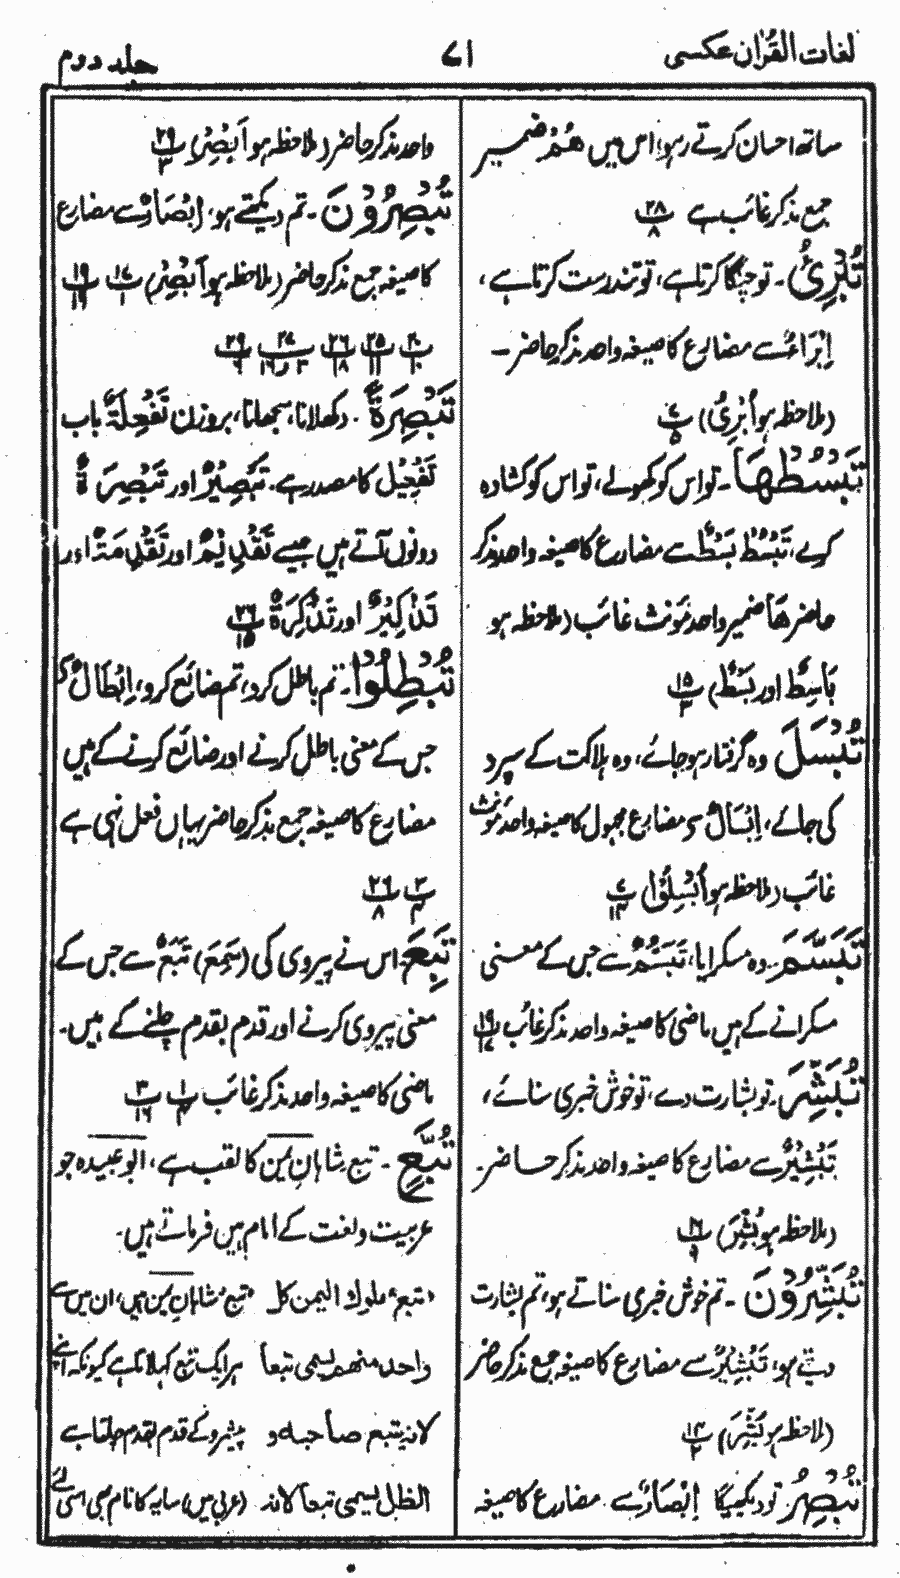 لغات القرآن عکسی
۷۱
جلد دوم
ساتھ احسان کرتے رہو اس میں ھُمْ ضمیر
جمع مذکر غائب ہے ۲۸/۸
تُبْرِئُ۔ تو چنگا کرتا ہے، تو تندرست کرتا ہے،
اِبْرَاءٌ سے مضارع کا صیغہ واحد مذکر حاضر۔
(ملاحظہ ہو اُبْرِئُ) ۷/۵
تَبْسُطْهَا۔ تو اس کو کھولے، تو اس کو کشادہ
کرے، تَبْسُطُ بَسْطٌ سے مضارع کا صیغہ واحد مذکر
حاضر ھَا ضمیر واحد مونث غائب (ملاحظہ ہو
بَاسِطٌ اور بَسْطٌ) ۱۵/۳
تُبْسَلَ وہ گرفتار ہو جائے، وہ ہلاکت کے سپرد
کی جائے، اِبْسَالٌ سے مضارع مجہول کا صیغہ واحد مونث
غائب (ملاحظہ ہو اُبْسِلُوْا) ۷/۱۴
تَبَسَّمَ۔ وہ مسکرایا، تَبَسُّمٌ سے جس کے معنی
مسکرانے کے ہیں ماضی کا صیغہ واحد مذکر غائب ۱۹/۱۷
تُبَشِّرَ۔ تو بشارت دے، تو خوش خبری سنائے،
تَبْشِیْرٌ سے مضارع کا صیغہ واحد مذکر حاضر۔
(ملاحظہ ہو بَشِّرْ) ۱۶/۹
تُبَشِّرُوْنَ۔ تم خوش خبری سناتے ہو، تم بشارت
دیتے ہو، تَبْشِیْرٌ سے مضارع کا صیغہ جمع مذکر حاضر
(ملاحظہ ہو بَشِّرْ) ۱۴/۴
تُبْصِرُ تو دیکھیگا اِبْصَارٌ سے مضارع کا صیغہ
واحد مذکر حاضر (ملاحظہ ہو اَبْصِرْ) ۲۹/۳
تُبْصِرُوْنَ۔ تم دیکھتے ہو، اِبْصَارٌ سے مضارع
کا صیغہ جمع مذکر حاضر (ملاحظہ ہو اَبْصِرْ) ۱۷/۱ ۱۹/۱۹
۲۰/۱۰ ۲۵/۱۱ ۲۶/۱۸ ۲۷/۳ و ۱۶ ۲۹/۶
تَبْصِرَةً۔ دکھلانا، سمجھانا، بروزن تَفْعِلَةً باب
تَفْعِیْل کا مصدر ہے۔ تَبْصِیْرٌ اور تَبْصِرَةٌ
دونوں آتے ہیں جیسے تَقْدِیْمٌ اور تَقْدِمَةٌ اور
تَذْکِیْرٌ اور تَذْکِرَةٌ ۲۶/۱۵
تُبْطِلُوْا۔ تم باطل کرو، تم ضائع کرو، اِبْطَالٌ سے
جس کے معنی باطل کرنے اور ضائع کرنے کے ہیں
مضارع کا صیغہ جمع مذکر حاضر یہاں فعل نہی ہے
۳/۴ ۲۶/۸
تَبِعَ۔ اس نے پیروی کی (سَمِعَ) تَبَعٌ سے جس کے
معنی پیروی کرنے اور قدم بقدم چلنے کے ہیں۔
ماضی کا صیغہ واحد مذکر غائب ۱/۴ ۳/۱۶
تُبَّعٍ۔ تبع شاہانِ یمن کا لقب ہے، ابو عبیدہ جو
عربیت ولغت کے امام ہیں فرماتے ہیں۔
"تبع" ملوك الیمن کل "تبع" شاہانِ یمن ہیں، ان میں سے
واحد منهم یسمی تبعا ہر ایک تبع کہلاتا ہے کیونکہ اپنے
لانه یتبع صاحبه و پیشرو کے قدم بقدم چلتا ہے
الظل یسمی تبعا لانه (عربی میں) سایہ کا نام بھی اسی لئے